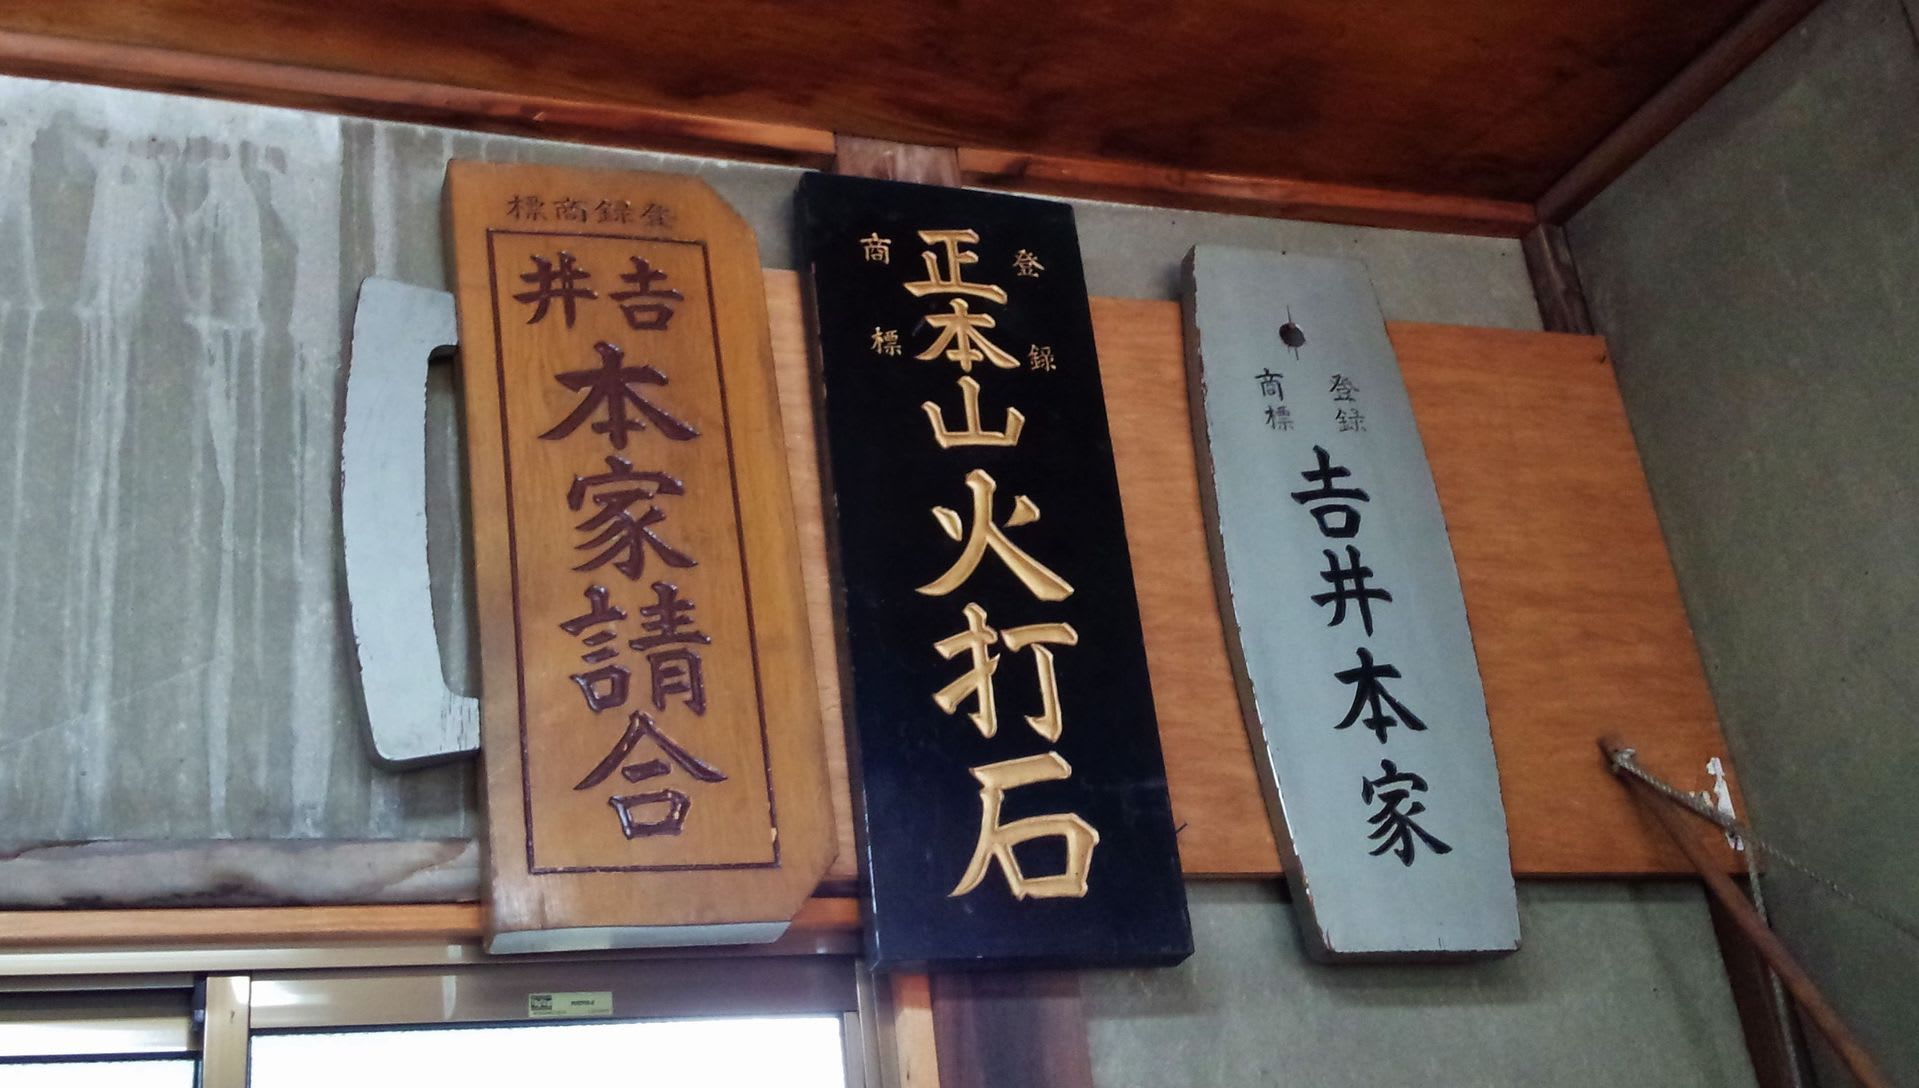 登録商標
吉井
本家請合
登録
商標
正本山火打石
登録
商標
吉井本家